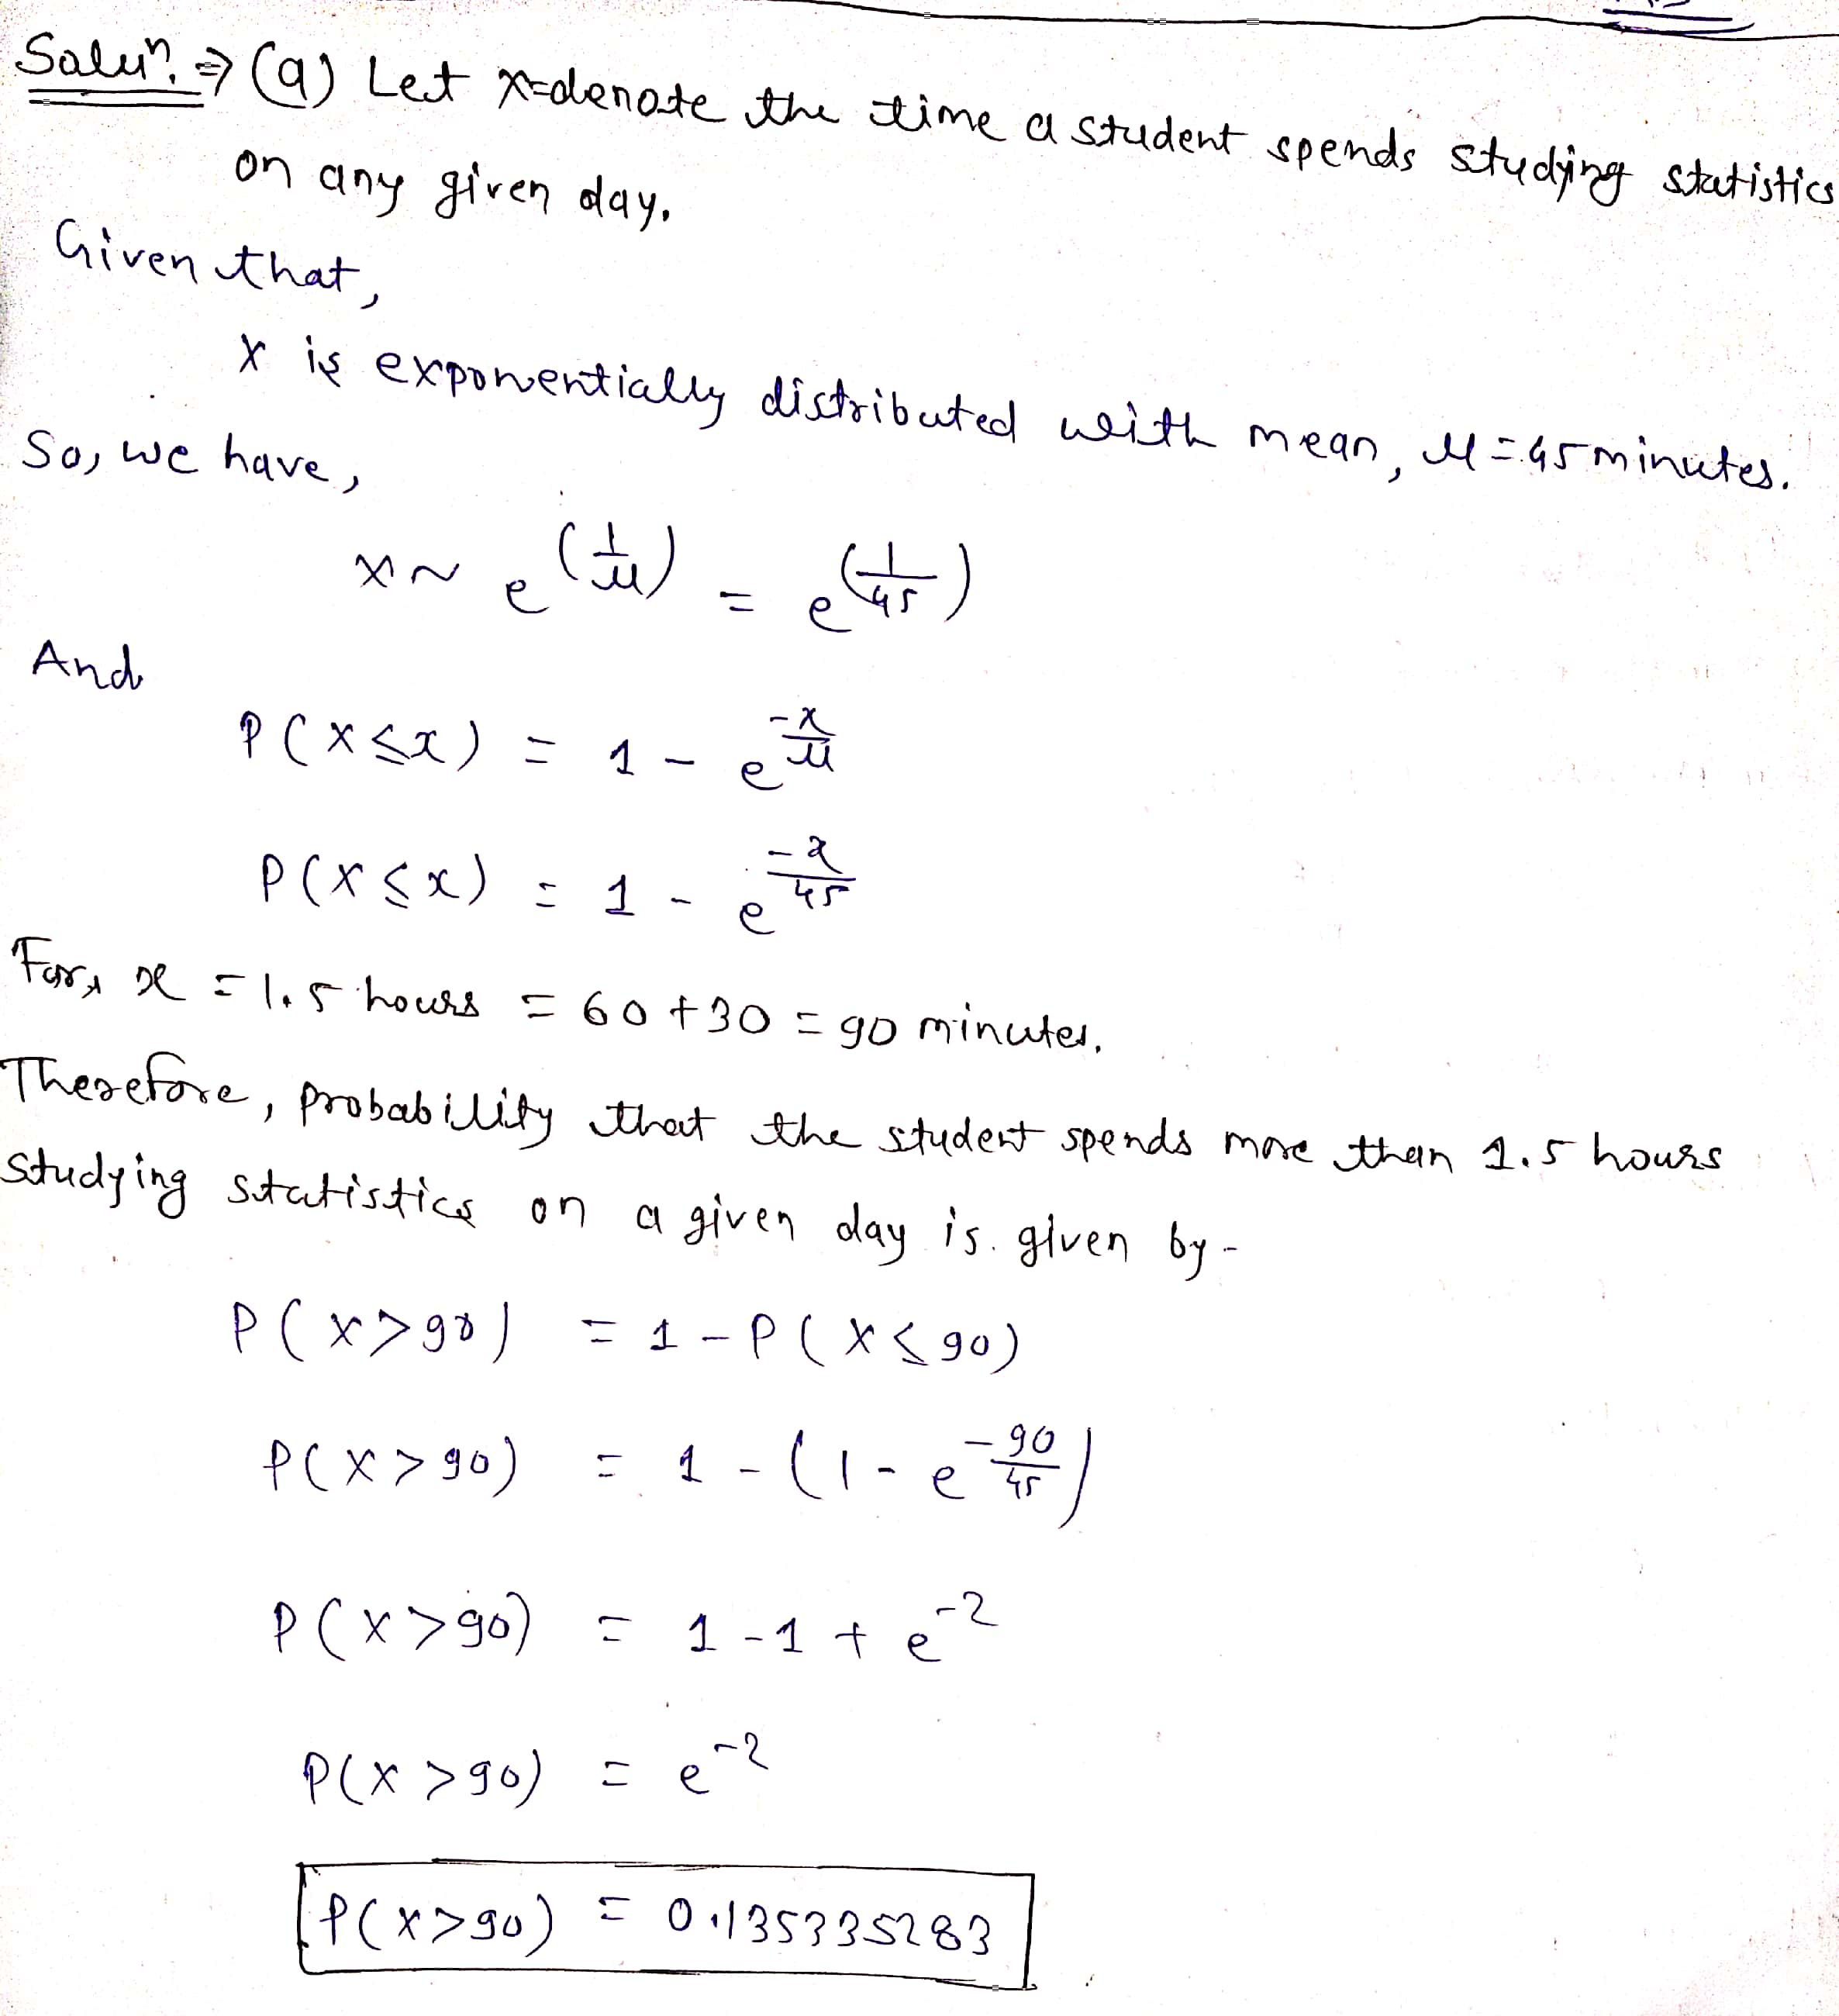 Solun. ⇒ (a) Let x=denote the time a student spends studying statistics
on any given day.
Given that,
X is exponentially distributed with mean, μ = 45 minutes.
So, we have,
X ~ e^(1/μ) = e^(1/45)
And
P(X ≤ x) = 1 - e^(-x/μ)
P(X ≤ x) = 1 - e^(-x/45)
For, x = 1.5 hours = 60 + 30 = 90 minutes.
Therefore, probability that the student spends more than 1.5 hours
studying statistics on a given day is given by -
P(X > 90) = 1 - P(X ≤ 90)
P(X > 90) = 1 - (1 - e^(-90/45))
P(X > 90) = 1 - 1 + e^-2
P(X > 90) = e^-2
P(X > 90) = 0.135335283